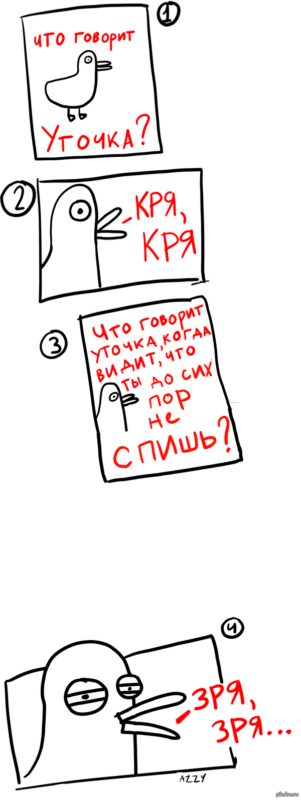 1
что говорит
Уточка?
2
- КРЯ,
КРЯ
3
Что говорит
уточка, когда
видит, что
ты до сих
пор
не
спишь?
4
ЗРЯ,
ЗРЯ...
AZZY
pikabu.ru